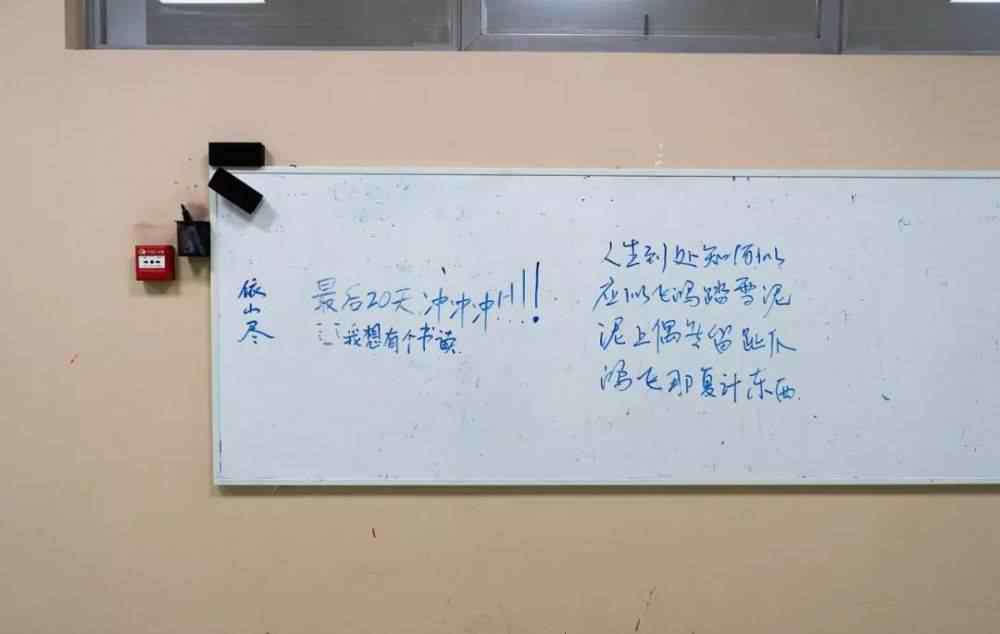 依山尽
最后20天,冲冲冲!!!!!
我想有个书读
人生到处知何似
应似飞鸿踏雪泥
泥上偶然留趾爪
鸿飞那复计东西